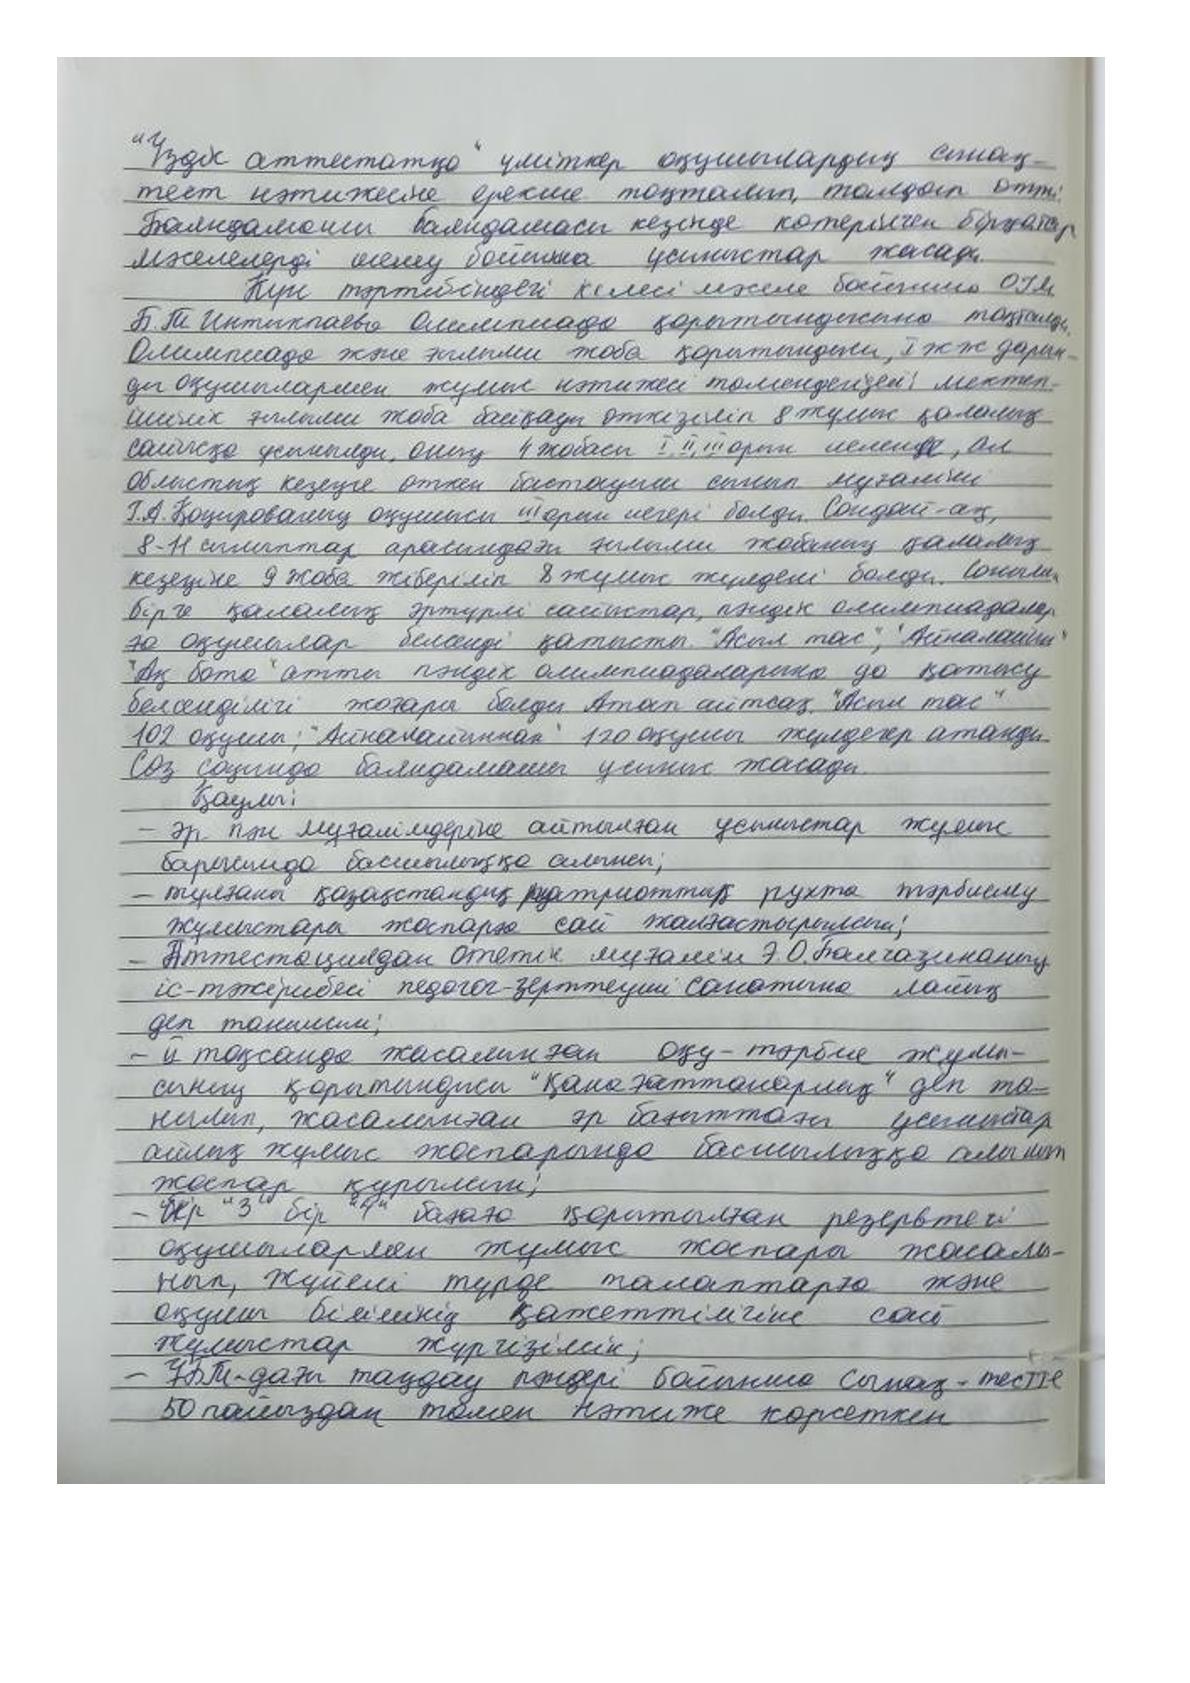 "Үздік аттестатқа" үміткер оқушылардың сынақ-
тест нәтижесіне ерекше тоқталып, талдап өтті.
Баяндамашы баяндамасы кезінде көтерілген бірқатар
мәселелерді шешу бойынша ұсыныстар жасады.
Күн тәртібіндегі келесі мәселе бойынша ОІМ
Б.Т. Интикпаева Олимпиада қорытындысына тоқталды.
Олимпиада және ғылыми жоба қорытындысы, І ж.ж дарын-
ды оқушылармен жұмыс нәтижесі төмендегідей: мектеп-
ішілік ғылыми жоба байқауы өткізіліп 8 жұмыс қалалық
сайысқа ұсынылды, оның 4 жобасы І, ІІ, ІІІ орын иеленді, ал
Облыстық кезеңге өткен бастауыш сынып мұғалімі
Г.А. оқушысы ІІІ орын иегері болды. Сондай-ақ,
8-11 сыныптар арасындағы ғылыми жобаның қалалық
кезеңіне 9 жоба жіберіліп 8 жұмыс жүлделі болды. Сонымен
бірге қалалық әртүрлі сайыстар, пәндік олимпиадалар
ға оқушылар белсенді қатысты. "Асыл тас", "Айналайын"
"Ақ бота" атты пәндік олимпиадаларына да қатысу
белсенділігі жоғары болды. Атап айтсақ, "Асыл тас"
102 оқушы; "Айналайыннан" 120 оқушы жүлдегер атанды.
Сөз соңында баяндамашы ұсыныс жасады.
Қаулы:
- әр пән мұғалімдеріне айтылған ұсыныстар жұмыс
барысында басшылыққа алынсын;
- тұлғаны қазақстандық патриоттық рухта тәрбиелеу
жұмыстары жоспарға сай жалғастырылсын;
- Аттестациядан өтетін мұғалім Э.О. Балгазинаның
іс-тәжірибесі педагог-зерттеуші санатына лайық
деп танылсын;
- ІІ тоқсанда жасалынған оқу-тәрбие жұмы-
сының қорытындысы "Қанағаттанарлық" деп та-
нылып, жасалынған әр бағыттағы ұсыныстар
айлық жұмыс жоспарында басшылыққа алынып
жоспар құрылсын;
- Бір "3" бір "4" бағаға қорытылған резервтегі
оқушылармен жұмыс жоспары жасалы-
нып, жүйелі түрде талаптарға және
оқушы білімінің қажеттілігіне сай
жұмыстар жүргізілсін;
- ҰБТ-дағы таңдау пәндері бойынша сынақ-тестте
50 пайыздан төмен нәтиже көрсеткен